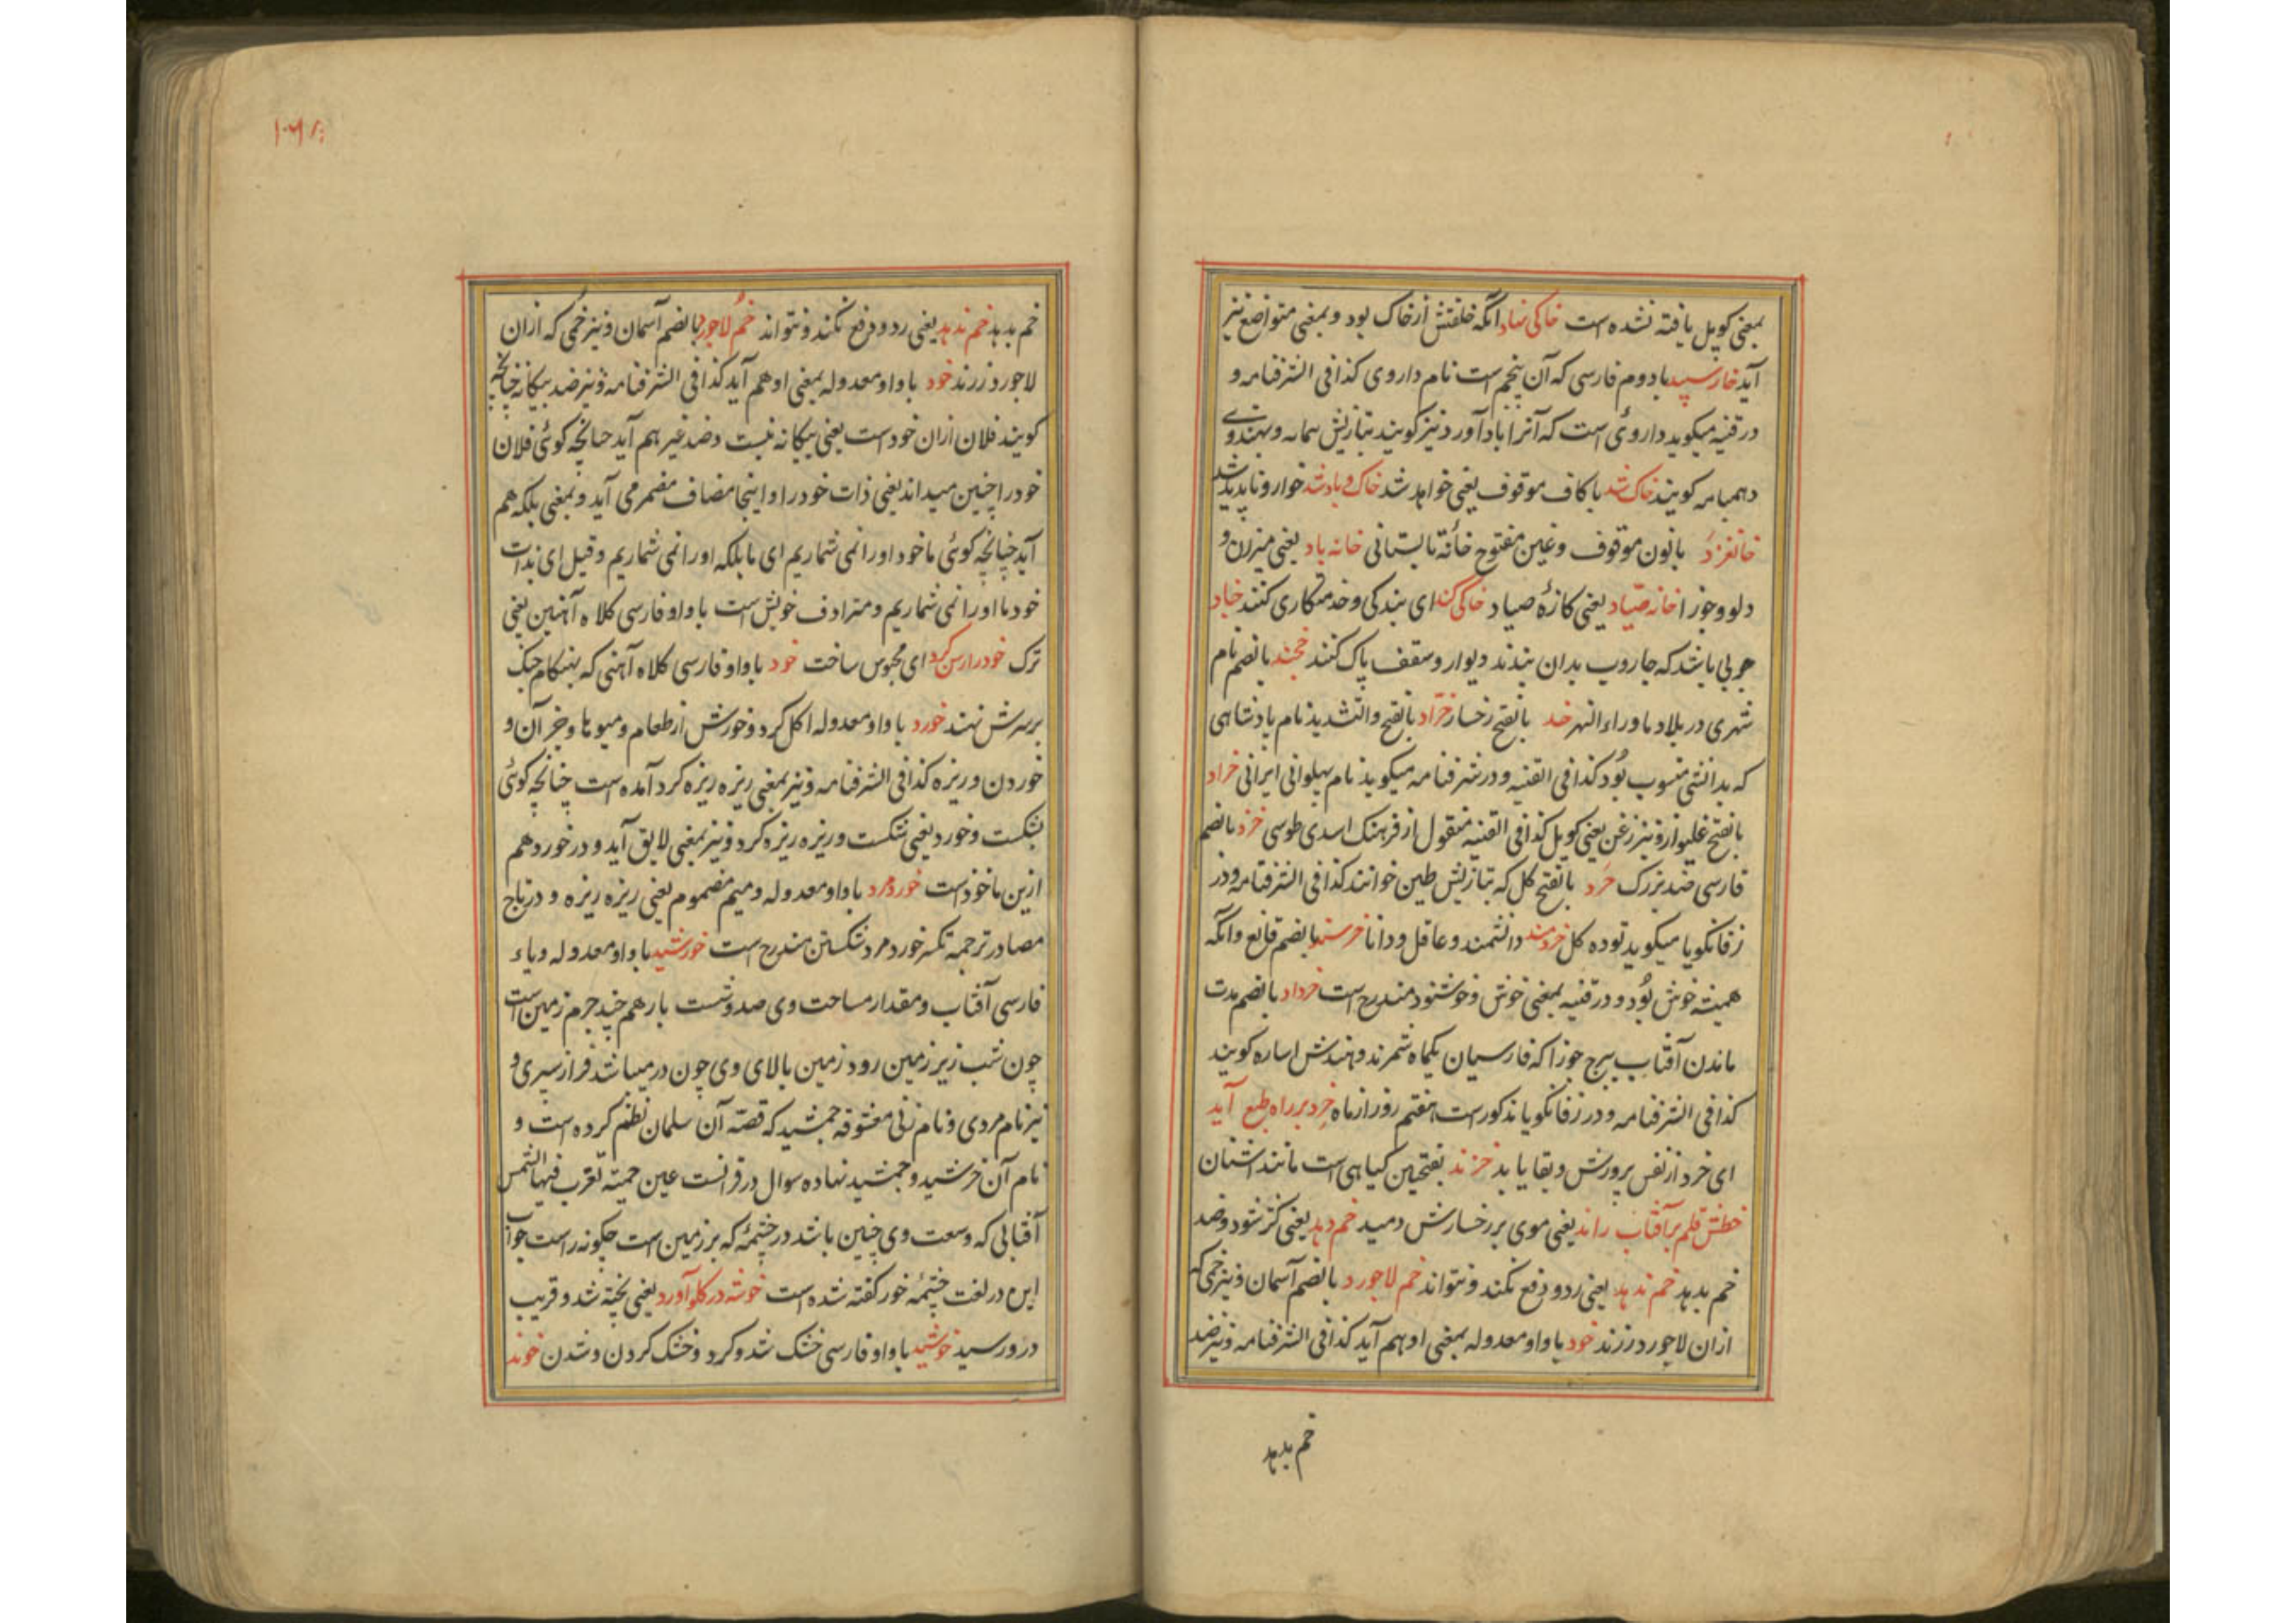 بمعنی کویل یافته نشده است خاکی نهاد آنکه خلقتش از خاک بود و بمعنی متواضع نیز
آید خارسپید با دوم فارسی که آن پنجم است نام داروی کذا فی الشرفنامه و
در قنیه میکوید داروئی است که آنرا بادآورد نیز کویند بتازیش و بهندوی
کویند خاک شد با کاف موقوف یعنی خواهد شد خاک و باد شد خوار و ناپدید شد
خانغزد با نون موقوف و غین مفتوح خانهٔ تابستانی خانه باد یعنی میزان و
دلو و جوزا خانه صیّاد یعنی کازهٔ صیاد خاکی کند ای بندکی و خدمتکاری کنند خباد
چوبی باشد که جاروب بدان بندند دیوار و سقف پاک کنند خجند بالضم نام
شهری در بلاد ماوراء النهر خد بالفتح رخسار خرّاد بالفتح والتشدید نام پادشاهی
که بدانشی منسوب بُود کذا فی القنیه و در شرفنامه میکوید نام پهلوانی ایرانی خراد
بالفتح غلیواژ و نیز زغن یعنی کویل کذا فی القنیه منقول از فرهنک اسدی طوسی خرد بالضم
فارسی ضد بزرک خَرد بالفتح کل که بتازیش طین خوانند کذا فی الشرفنامه و در
زفانکویا میکوید توده کل خردمند دانشمند و عاقل و دانا خرسند بالضم قانع و آنکه
همیشه خوش بُود و در قنیه بمعنی خوش و خوشنود مندرج است خرداد بالضم مدت
ماندن آفتاب ببرج جوزا که فارسیان یکماه شمرند و هندش اساره کویند
کذا فی الشرفنامه و در زفانکویا مذکور است هفتم روز از ماه خرد بر راه طبع آید
ای خرد از نفس پرورش و بقا یابد خزند بفتحین کیاهی است مانند اشنان
خطش قلم بر آفتاب راند یعنی موی بر رخسارش دمید خم دهد یعنی کژ شود و ضد
خم بدهد خم ندهد یعنی رد و دفع نکند و نتواند خم لاجورد بالضم آسمان و نیز خمی که
ازان لاجورد رزند خود با واو معدوله بمعنی او هم آید کذا فی الشرفنامه و نیز ضد
خم بدهد
خم بدهد خم ندهد یعنی رد و دفع نکند و نتواند خُم لاجورد بالضم آسمان و نیز خمی که ازان
لاجورد رزند خود با واو معدوله بمعنی او هم آید کذا فی الشرفنامه و نیز ضد بیکانه چنانچه
کویند فلان ازان خود است یعنی بیکانه نیست و ضد غیر هم آید چنانچه کوئی فلان
خود را چنین میداند یعنی ذات خود را و اینجا مضاف مضمر می آید و بمعنی بلکه هم
آید چنانچه کوئی ما خود او را نمی شماریم ای ما بلکه او را نمی شماریم و قیل ای بذات
خود ما او را نمی شماریم و مترادف خویش است با واو فارسی کلاه آهنین یعنی
ترک خود را رسن کرد ای محبوس ساخت خود با واو فارسی کلاه آهنی که بهنکام جنک
بر سرش نهند خورد با واو معدوله اکل کرد و خورش از طعام و میوها و جز آن و
خوردن و ریزه کذا فی الشرفنامه و نیز بمعنی ریزه ریزه کرد آمده است چنانچه کوئی
بشکست و خورد یعنی شکست و ریزه ریزه کرد و نیز بمعنی لایق آید و در خورد هم
ازین ماخوذ است خورد مرد با واو معدوله و میم مضموم یعنی ریزه ریزه و در تاج
مصادر ترجمه تکسر خورد مرد شکستن مندرج است خورشید با واو معدوله و یاء
فارسی آفتاب و مقدار مساحت وی صد و شست بار هم چند جرم زمین است
چون شب زیر زمین رود زمین بالای وی چون در میباشد فراز سپری و
نیز نام مردی و نام زنی معشوقه جمشید که قصه آن سلمان نظم کرده است و
نام آن خرشید و جمشید نهاده سوال در قرانست عین حمیة تغرب فیها الشمس
آفتابی که وسعت وی چنین باشد در چشمهٔ که بر زمین است چکونه راست جواب
این در لغت چشمهٔ خور کفته شده است خوشه در کلو آورد یعنی پخته شد و قریب
درو رسید خوشید با واو فارسی خشک شد و کرد و خشک کردن و شدن خوند